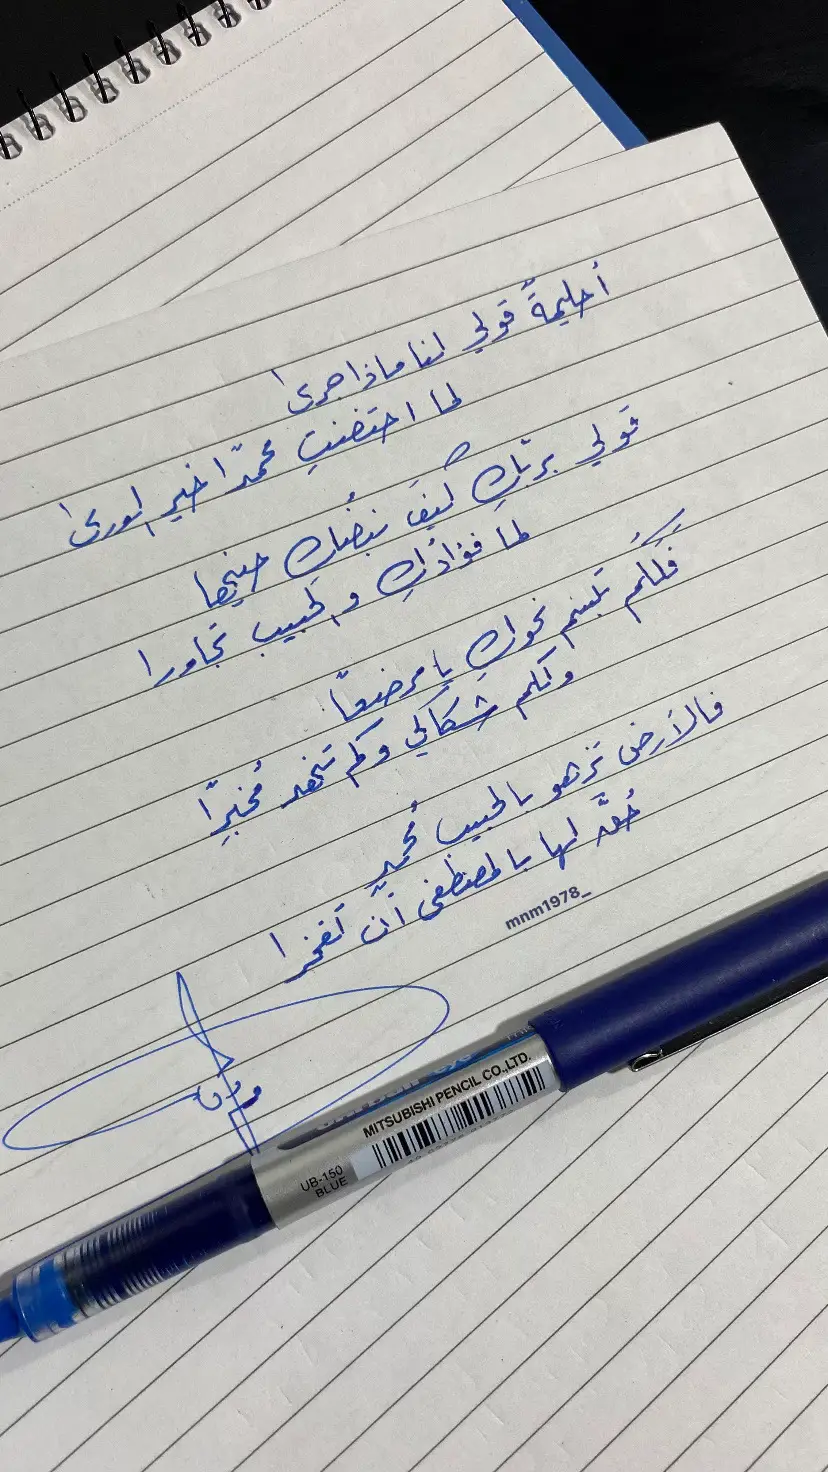 أحليمةً قولي لنا ماذا جرى
لما احتضنتِ محمدًا خير الورى
قولي بربّكِ كيفَ نبضُكِ حينها
لما فؤادُكِ والحبيب تجاورا
فَلَكَم تبسم نحوكِ يا مرضعًا
ولكم شكالي وكم تنهد مُخبِرًا
فالأرض تزهو بالحبيب مُحمدٍ
حُقَّ لها بالمصطفى أن تفخرا
mnm1978_
MITSUBISHI PENCIL CO.,LTD.
UB-150
BLUE